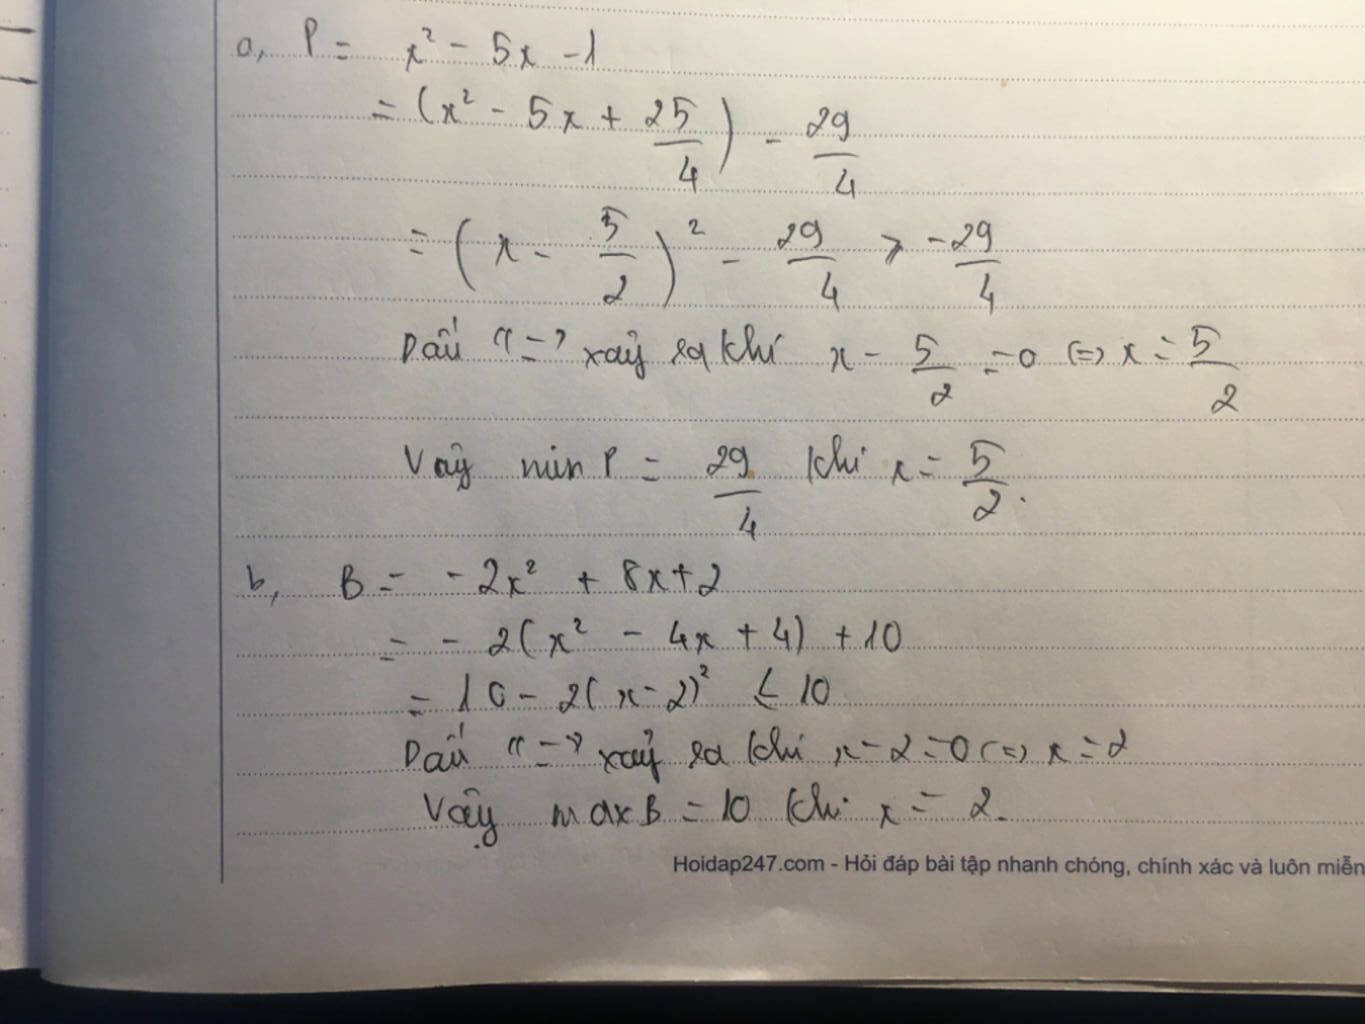 a, P = x² - 5x - 1
= (x² - 5x + 25/4) - 29/4
= (x - 5/2)² - 29/4 ≥ -29/4
Dấu "=" xảy ra khi x - 5/2 = 0 (=) x = 5/2
Vậy min P = 29/4 khi x = 5/2.
b, B = -2x² + 8x + 2
= -2(x² - 4x + 4) + 10
= 10 - 2(x - 2)² ≤ 10
Dấu "=" xảy ra khi x - 2 = 0 (=) x = 2
Vậy max B = 10 khi x = 2.
Hoidap247.com - Hỏi đáp bài tập nhanh chóng, chính xác và luôn miễn